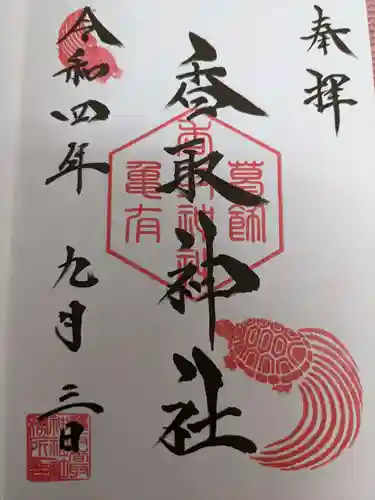 奉拝
香取神社
葛飾
亀有
香取神社
令和四年 九月三日